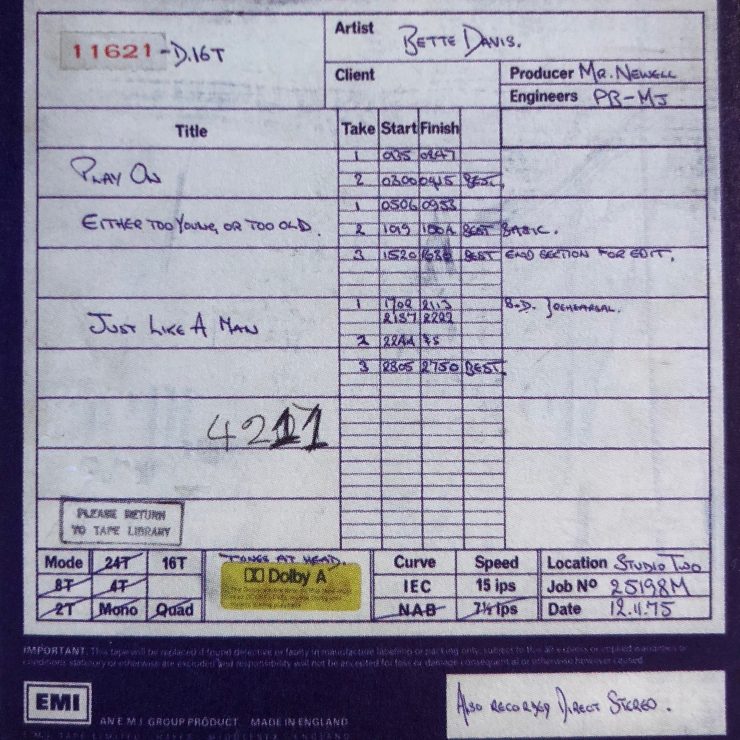 11621-D.16T
Artist BETTE DAVIS.
Client
Producer MR. NEWELL
Engineers PB-MJ
Title Take Start Finish
PLAY ON 1 0247
2 0300 0415 BEST
EITHER TOO YOUNG, OR TOO OLD. 1 0506 0953
2 1019 BEST BASIC.
3 1520 1636 BEST END SECTION FOR EDIT.
JUST LIKE A MAN 1 1702 2113 B.D. REHEARSAL.
2157 2222
2 2244 FS
3 2305 2750 BEST
4211
PLEASE RETURN
TO TAPE LIBRARY
Mode 24T 16T TONES AT HEAD. Curve Speed Location STUDIO TWO
8T 4T Dolby A IEC 15 ips Job Nº 25198M
2T Mono Quad NAB 7½ ips Date 12.11.75
IMPORTANT. This tape will be replaced if found defective or faulty in manufacture labelling or packing only, subject to this all express or implied warranties or
conditions statutory or otherwise are excluded and responsibility will not be accepted for loss or damage consequential or otherwise however caused.
EMI AN EMI GROUP PRODUCT. MADE IN ENGLAND
ALSO RECORDED DIRECT STEREO.